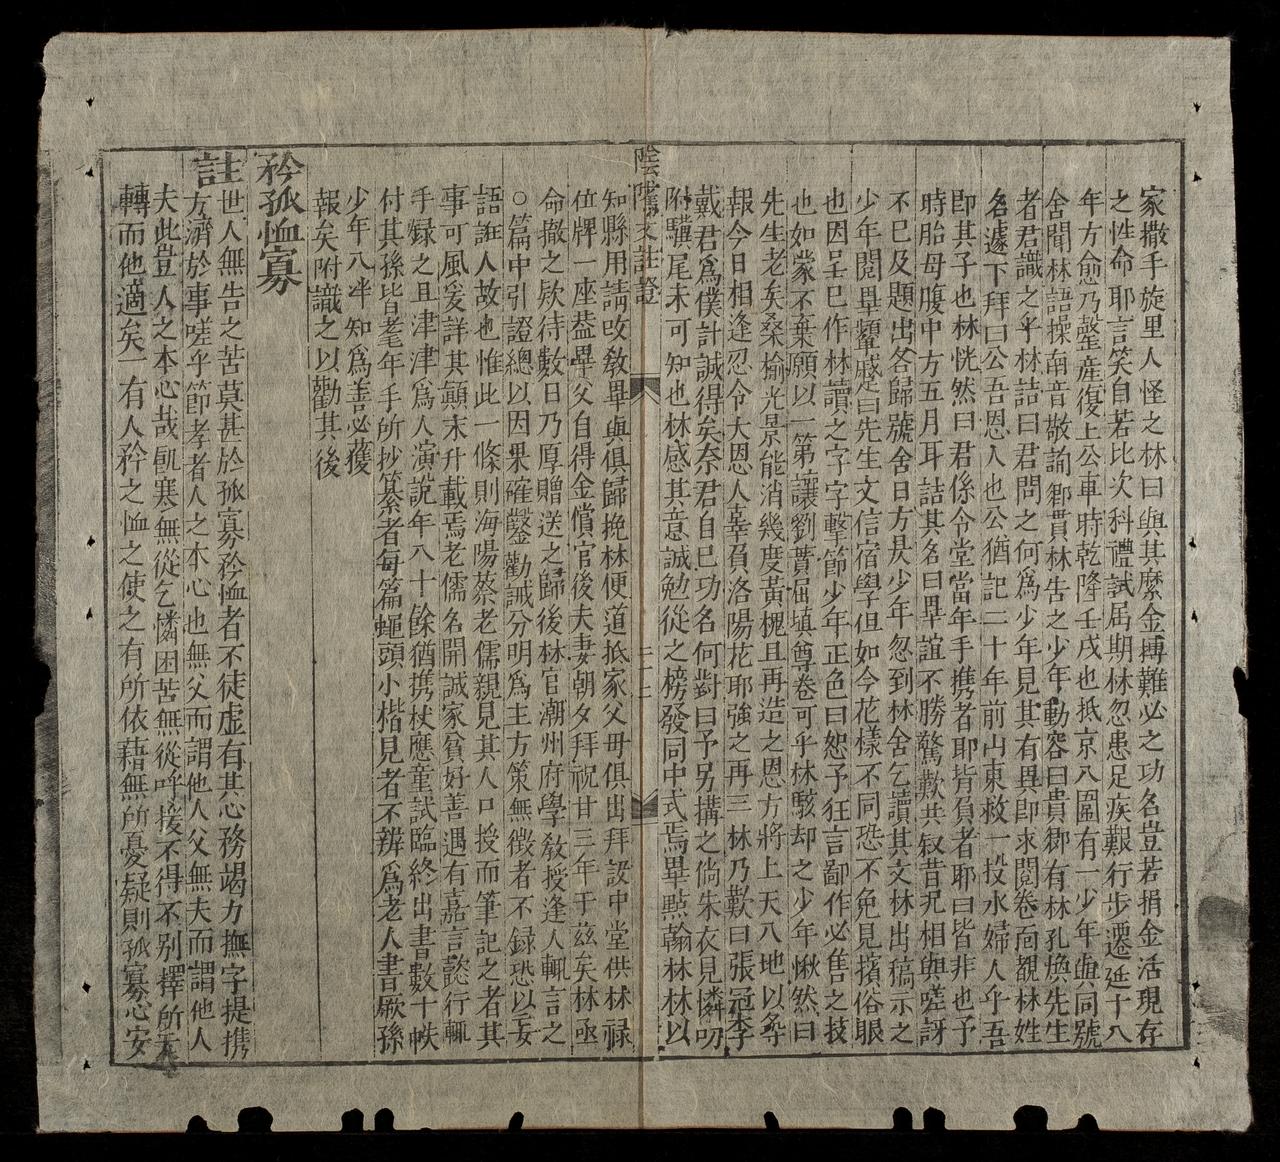 家撒手旋里人怪之林曰與其縻金摶難必之功名豈若捐金活現存
之性命耶言笑自若比次科禮試屆期林忽患足疾艱行步遷延十八
年方愈乃罄產復上公車時乾隆壬戌也抵京八圍有一少年與同號
舍聞林語操南音敬詢鄉貫林告之少年動容曰貴郡有林孔煥先生
者君識之乎林詰曰君問之何為少年見其有異即求閱卷面覩林姓
名遽下拜曰公吾恩人也公猶記二十年前山東救一投水婦人乎吾
即其子也林恍然曰君係令堂當年手携者耶背負者耶曰皆非也予
時胎母腹中方五月耳詰其名曰畢誼不勝驚歎共叙昔況相與嗟訝
不已及題出各歸號舍日方昃少年忽到林舍乞讀其文林出稿示之
少年閱畢顰蹙曰先生文信宿學但如今花樣不同恐不免見擯俗眼
也因呈已作林讀之字字擊節少年正色曰恕予狂言鄙作必售之技
也如蒙不棄願以一第讓劉蕡屈填尊卷可乎林駭却之少年愀然曰
先生老矣桑榆光景能消幾度黃槐且再造之恩方將上天八地以㝷
報今日相逢忍令大恩人辜負洛陽花耶強之再三林乃歎曰張冠李
戴君為僕計誠得矣奈君自已功名何對曰予另搆之倘朱衣見憐叨
附驥尾未可知也林感其意誠勉從之榜發同中式焉畢㸃翰林林以
陰隲文註證
二十二
知縣用請攺敎畢與俱歸挽林便道抵家父毋俱出拜設中堂供林祿
位牌一座葢畢父自得金償官後夫妻朝夕拜祝廿三年于兹矣林亟
命撤之欵待數日乃厚贈送之歸後林官潮州府學敎授逢人輒言之
○篇中引證總以因果確鑿勸誡分明為主方策無徵者不録恐以妄
語誑人故也惟此一條則海陽蔡老儒親見其人口授而筆記之者其
事可風爰詳其顛末升載焉老儒名開誠家貧好善遇有嘉言懿行輒
手録之且津津為人演說年八十餘猶携杖應童試臨終出書數十帙
付其孫皆耄年手所抄纂者每篇蠅頭小楷見者不辨為老人書厥孫
少年八泮 知為善必獲
報矣附識之以勸其後
矜孤恤寡
註 世人無告之苦莫甚於孤寡矜恤者不徒虛有其心務竭力撫字提携
方濟於事嗟乎節孝者人之本心也無父而謂他人父無夫而謂他人
夫此豈人之本心哉飢寒無從乞憐困苦無從呼援不得不别擇所天
轉而他適矣一有人矜之恤之使之有所依藉無所憂疑則孤寡心安